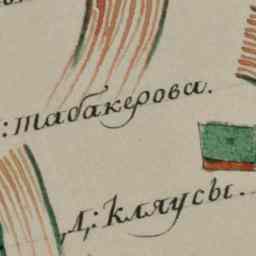 :табакерова.
Д:кляусы.